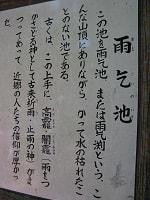 雨乞池
この池を雨乞池　または雨池という、こ
んな山頂にありながら、かつて水の枯れたこ
とのない池である。
古くは、この上手に、高龗・闇龗（雨をつ
かさどる神として古来祈雨・止雨の神）が
つってあって、近郷の人たちの信仰の厚かっ